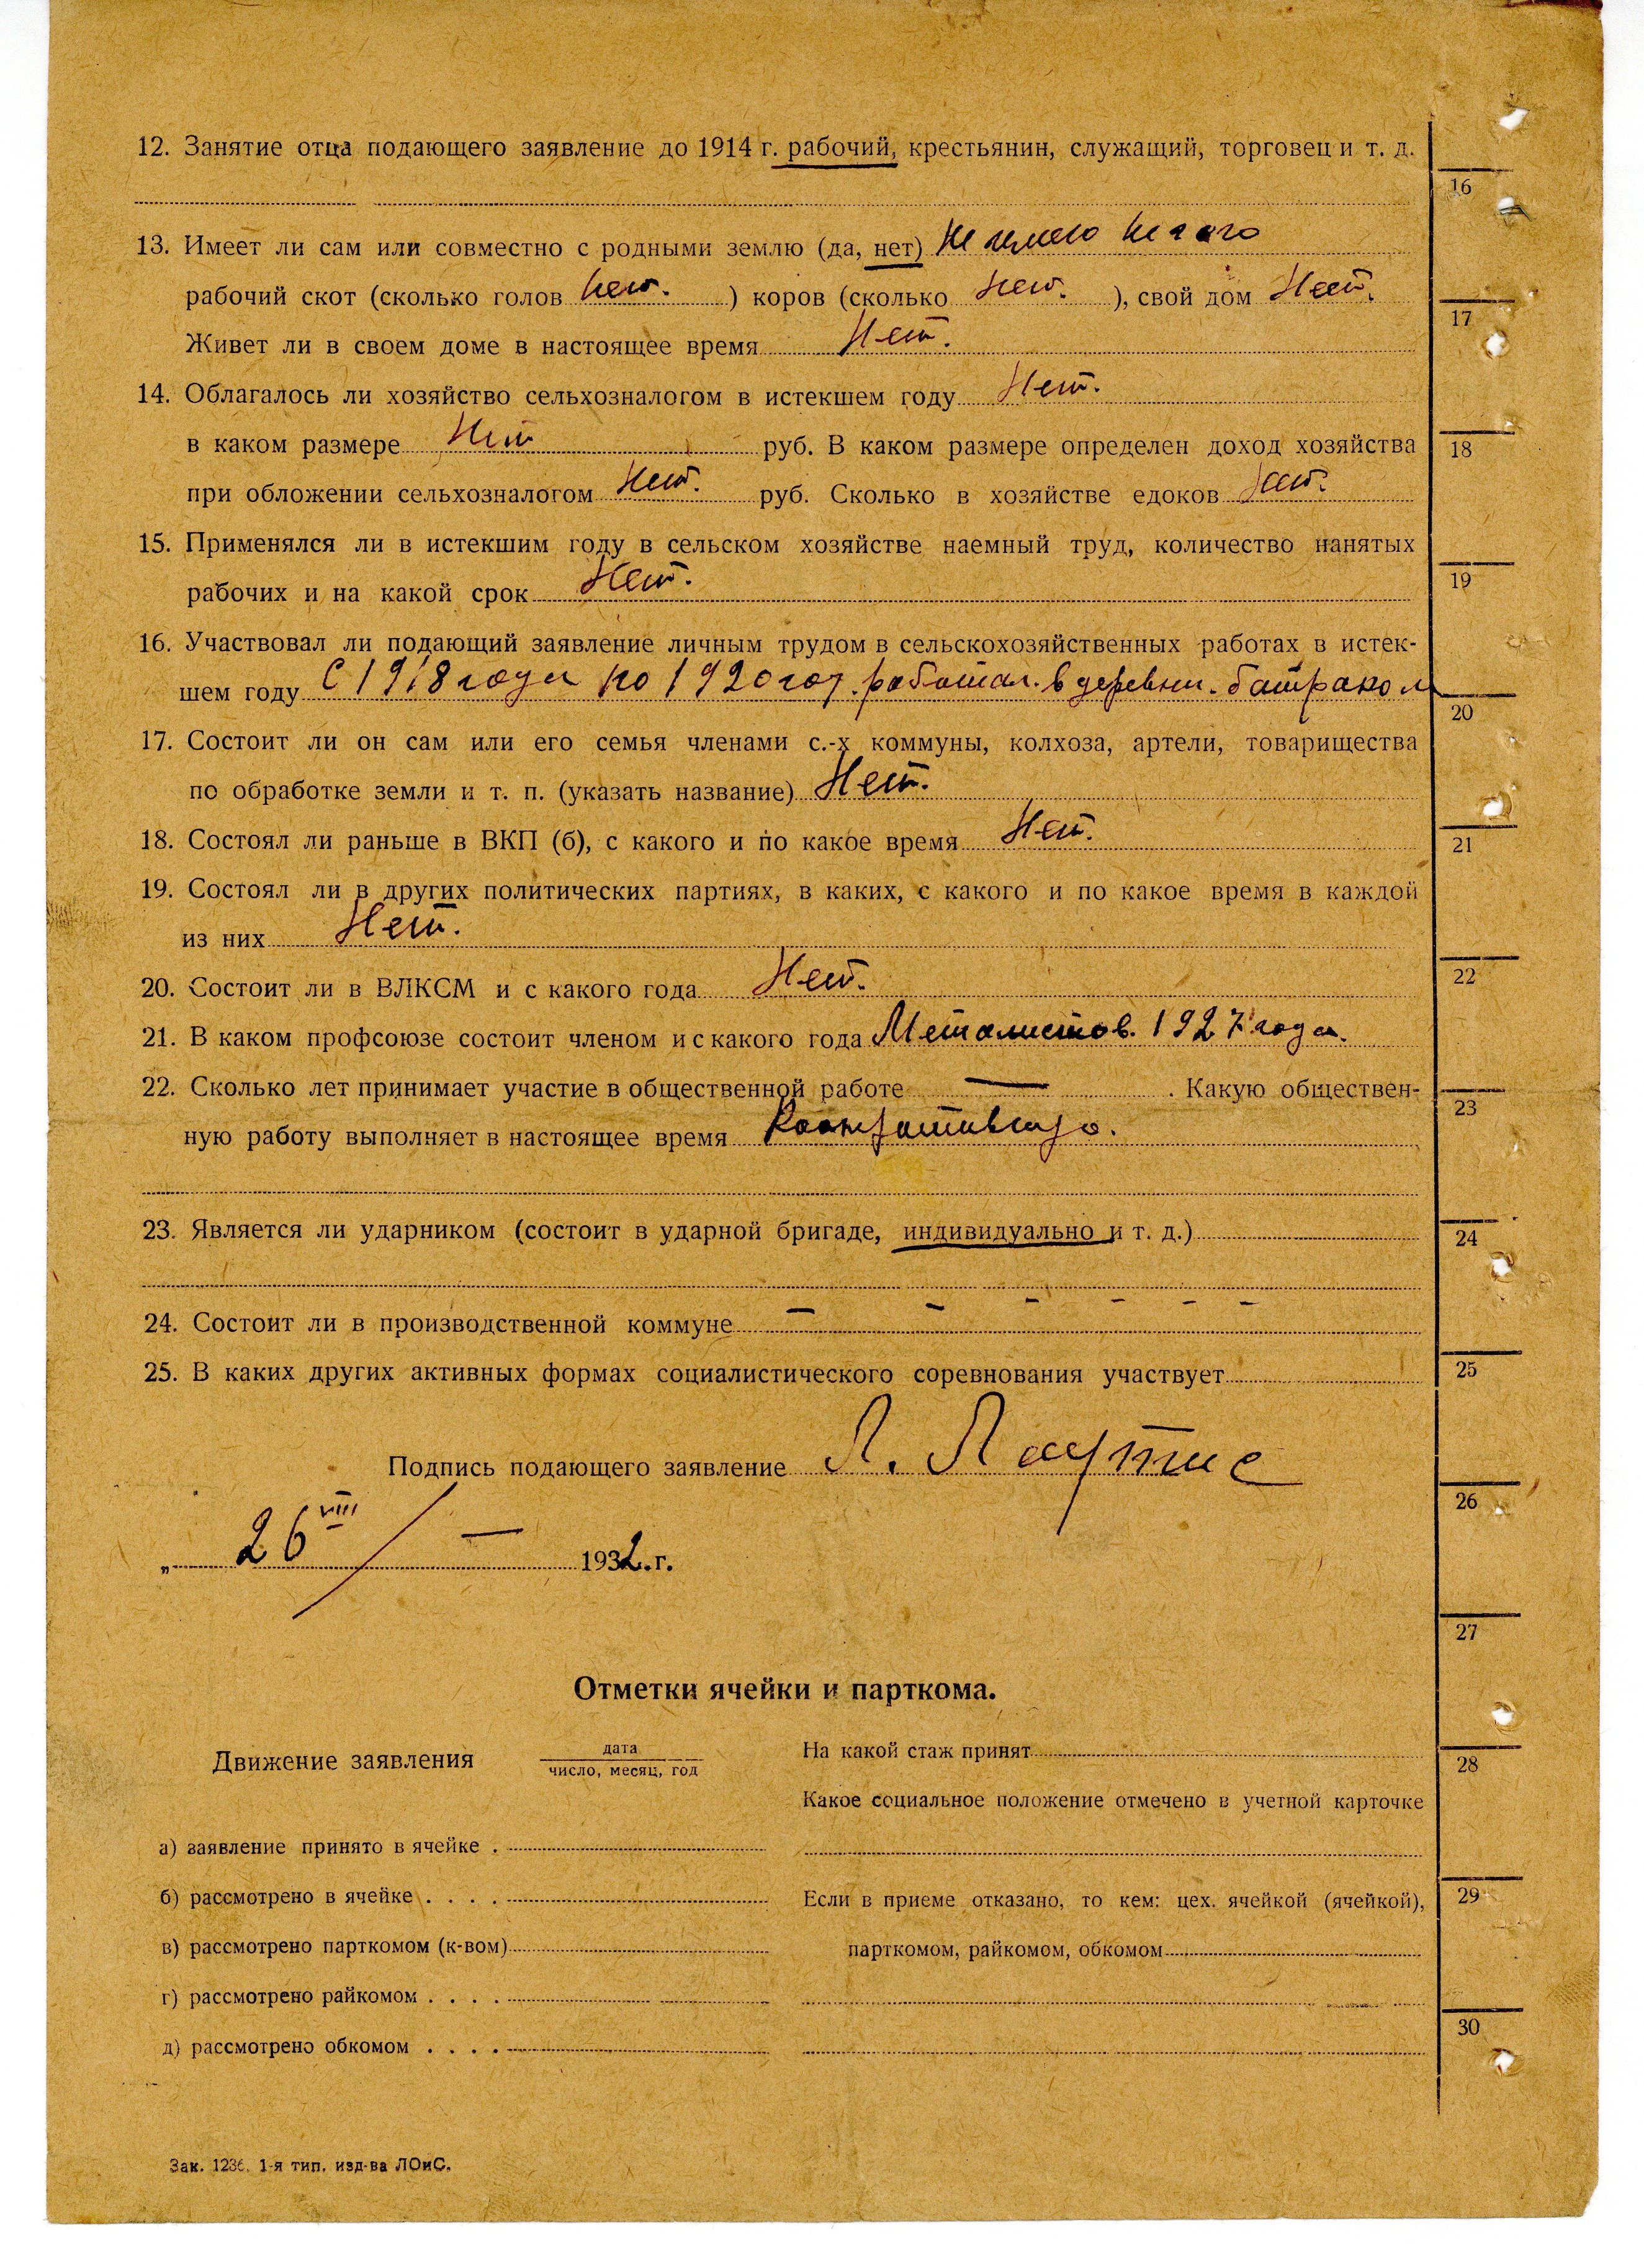 12. Занятие отца подающего заявление до 1914 г. рабочий, крестьянин, служащий, торговец и т. д.
13. Имеет ли сам или совместно с родными землю (да, нет) Не имею
рабочий скот (сколько голов нет.) коров (сколько нет.), свой дом Нет.
Живет ли в своем доме в настоящее время Нет.
14. Облагалось ли хозяйство сельхозналогом в истекшем году Нет.
в каком размере Нет руб. В каком размере определен доход хозяйства
при обложении сельхозналогом Нет. руб. Сколько в хозяйстве едоков Нет.
15. Применялся ли в истекшим году в сельском хозяйстве наемный труд, количество нанятых
рабочих и на какой срок Нет.
16. Участвовал ли подающий заявление личным трудом в сельскохозяйственных работах в истек-
шем году С 1918 года по 1920 год. работал. в деревни. батраком
17. Состоит ли он сам или его семья членами с.-х коммуны, колхоза, артели, товарищества
по обработке земли и т. п. (указать название) Нет.
18. Состоял ли раньше в ВКП (б), с какого и по какое время Нет.
19. Состоял ли в других политических партиях, в каких, с какого и по какое время в каждой
из них Нет.
20. Состоит ли в ВЛКСМ и с какого года Нет.
21. В каком профсоюзе состоит членом и с какого года Металистов. 1927 года.
22. Сколько лет принимает участие в общественной работе — . Какую обществен-
ную работу выполняет в настоящее время
23. Является ли ударником (состоит в ударной бригаде, индивидуально и т. д.)
24. Состоит ли в производственной коммуне – – – – – –
25. В каких других активных формах социалистического соревнования участвует
Подпись подающего заявление Л. Лаутис
„ 26 VIII / — 1932. г.
Отметки ячейки и парткома.
Движение заявления
дата
число, месяц, год
а) заявление принято в ячейке .
б) рассмотрено в ячейке . . . .
в) рассмотрено парткомом (к-вом)
г) рассмотрено райкомом . . . .
д) рассмотрено обкомом . . . .
На какой стаж принят
Какое социальное положение отмечено в учетной карточке
Если в приеме отказано, то кем: цех. ячейкой (ячейкой),
парткомом, райкомом, обкомом
Зак. 1236. 1-я тип. изд-ва ЛОиС.
16
17
18
19
20
21
22
23
24
25
26
27
28
29
30